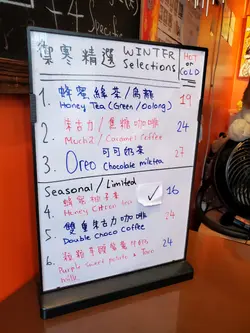 禦寒精選 WINTER Selections
HOT or COLD
1. 蜂蜜綠茶/烏龍 19
Honey Tea (Green/Oolong)
2. 朱古力/焦糖咖啡 24
Mocha / Caramel Coffee
3. 可可奶茶 27
Oreo Chocolate milktea
Seasonal / Limited
4. 蜂蜜柚子茶 16
Honey Citron tea
5. 雙重朱古力咖啡 24
Double Choco Coffee
6. 24
Purple Sweet potato & Taro
milk